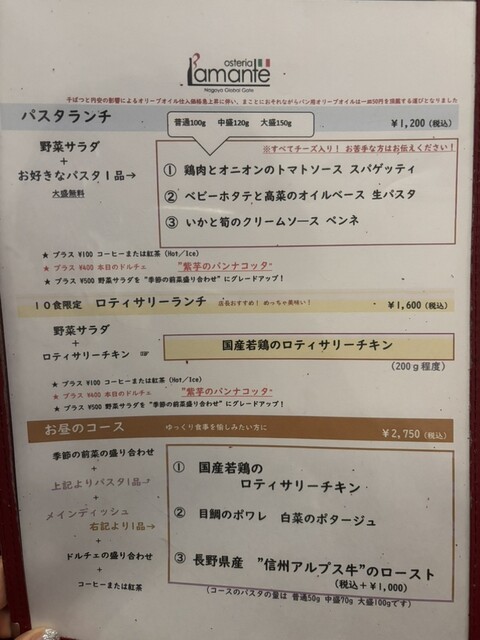 osteria
L'amante
Nagoya Global Gate
干ばつと円安の影響によるオリーブオイル仕入価格急上昇に伴い、まことにおそれながらパン用オリーブオイルは一皿50円を頂戴する運びとなりました
パスタランチ 普通100g 中盛120g 大盛150g ¥1,200（税込）
※すべてチーズ入り！ お苦手な方はお伝えください！
野菜サラダ
+
お好きなパスタ1品→
大盛無料
① 鶏肉とオニオンのトマトソース スパゲッティ
② ベビーホタテと高菜のオイルベース 生パスタ
③ いかと筍のクリームソース ペンネ
★ プラス ¥100 コーヒーまたは紅茶（Hot／Ice）
★ プラス ¥400 本日のドルチェ "紫芋のパンナコッタ"
★ プラス ¥500 野菜サラダを"季節の前菜盛り合わせ"にグレードアップ！
10食限定 ロティサリーランチ 店長おすすめ！ めっちゃ美味い！ ¥1,600（税込）
野菜サラダ
+
ロティサリーチキン ☞
国産若鶏のロティサリーチキン
（200ｇ程度）
★ プラス ¥100 コーヒーまたは紅茶（Hot／Ice）
★ プラス ¥400 本日のドルチェ "紫芋のパンナコッタ"
★ プラス ¥500 野菜サラダを"季節の前菜盛り合わせ"にグレードアップ！
お昼のコース ゆっくり食事を愉しみたい方に ¥2,750（税込）
季節の前菜の盛り合わせ
+
上記よりパスタ1品⤴
+
メインディッシュ
右記より1品→
+
ドルチェの盛り合わせ
+
コーヒーまたは紅茶
① 国産若鶏の
ロティサリーチキン
② 目鯛のポワレ 白菜のポタージュ
③ 長野県産 "信州アルプス牛"のロースト
（税込＋¥1,000）
（コースのパスタの量は 普通50g 中盛70g 大盛100gです）